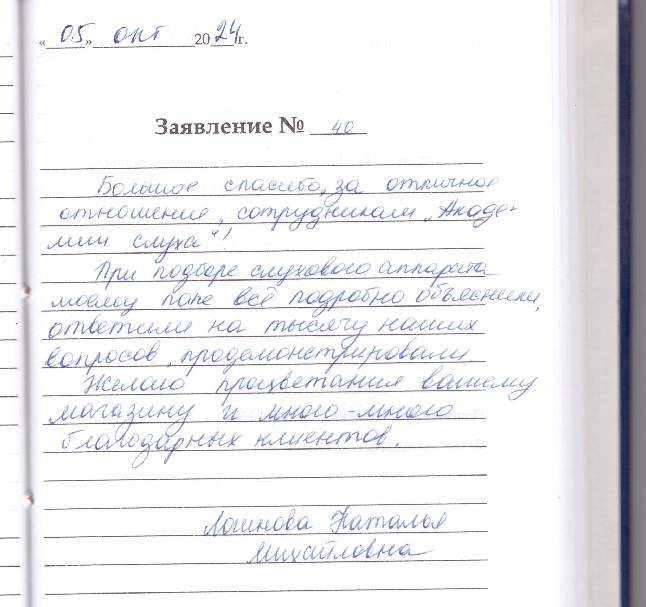 «05» окт 2024 г.
Заявление № 40
Большое спасибо, за отличное
отношение, сотрудникам „Акаде-
мии слуха“!
При подборе слухового аппарата
моему папе всё подробно объяснили,
ответили на тысячу наших
вопросов, продемонстрировали
Желаю процветания вашему
магазину и много-много
благодарных клиентов.
Логинова Наталья
Михайловна